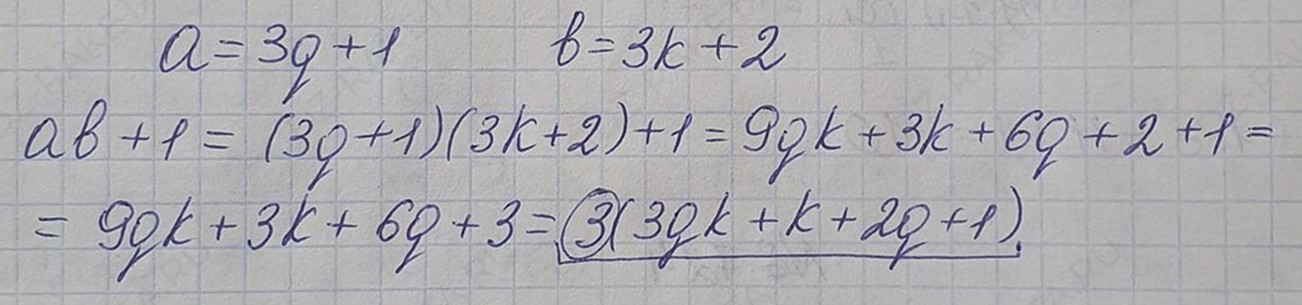 a = 3q + 1    b = 3k + 2
ab + 1 = (3q + 1)(3k + 2) + 1 = 9qk + 3k + 6q + 2 + 1 =
= 9qk + 3k + 6q + 3 = 3(3qk + k + 2q + 1).